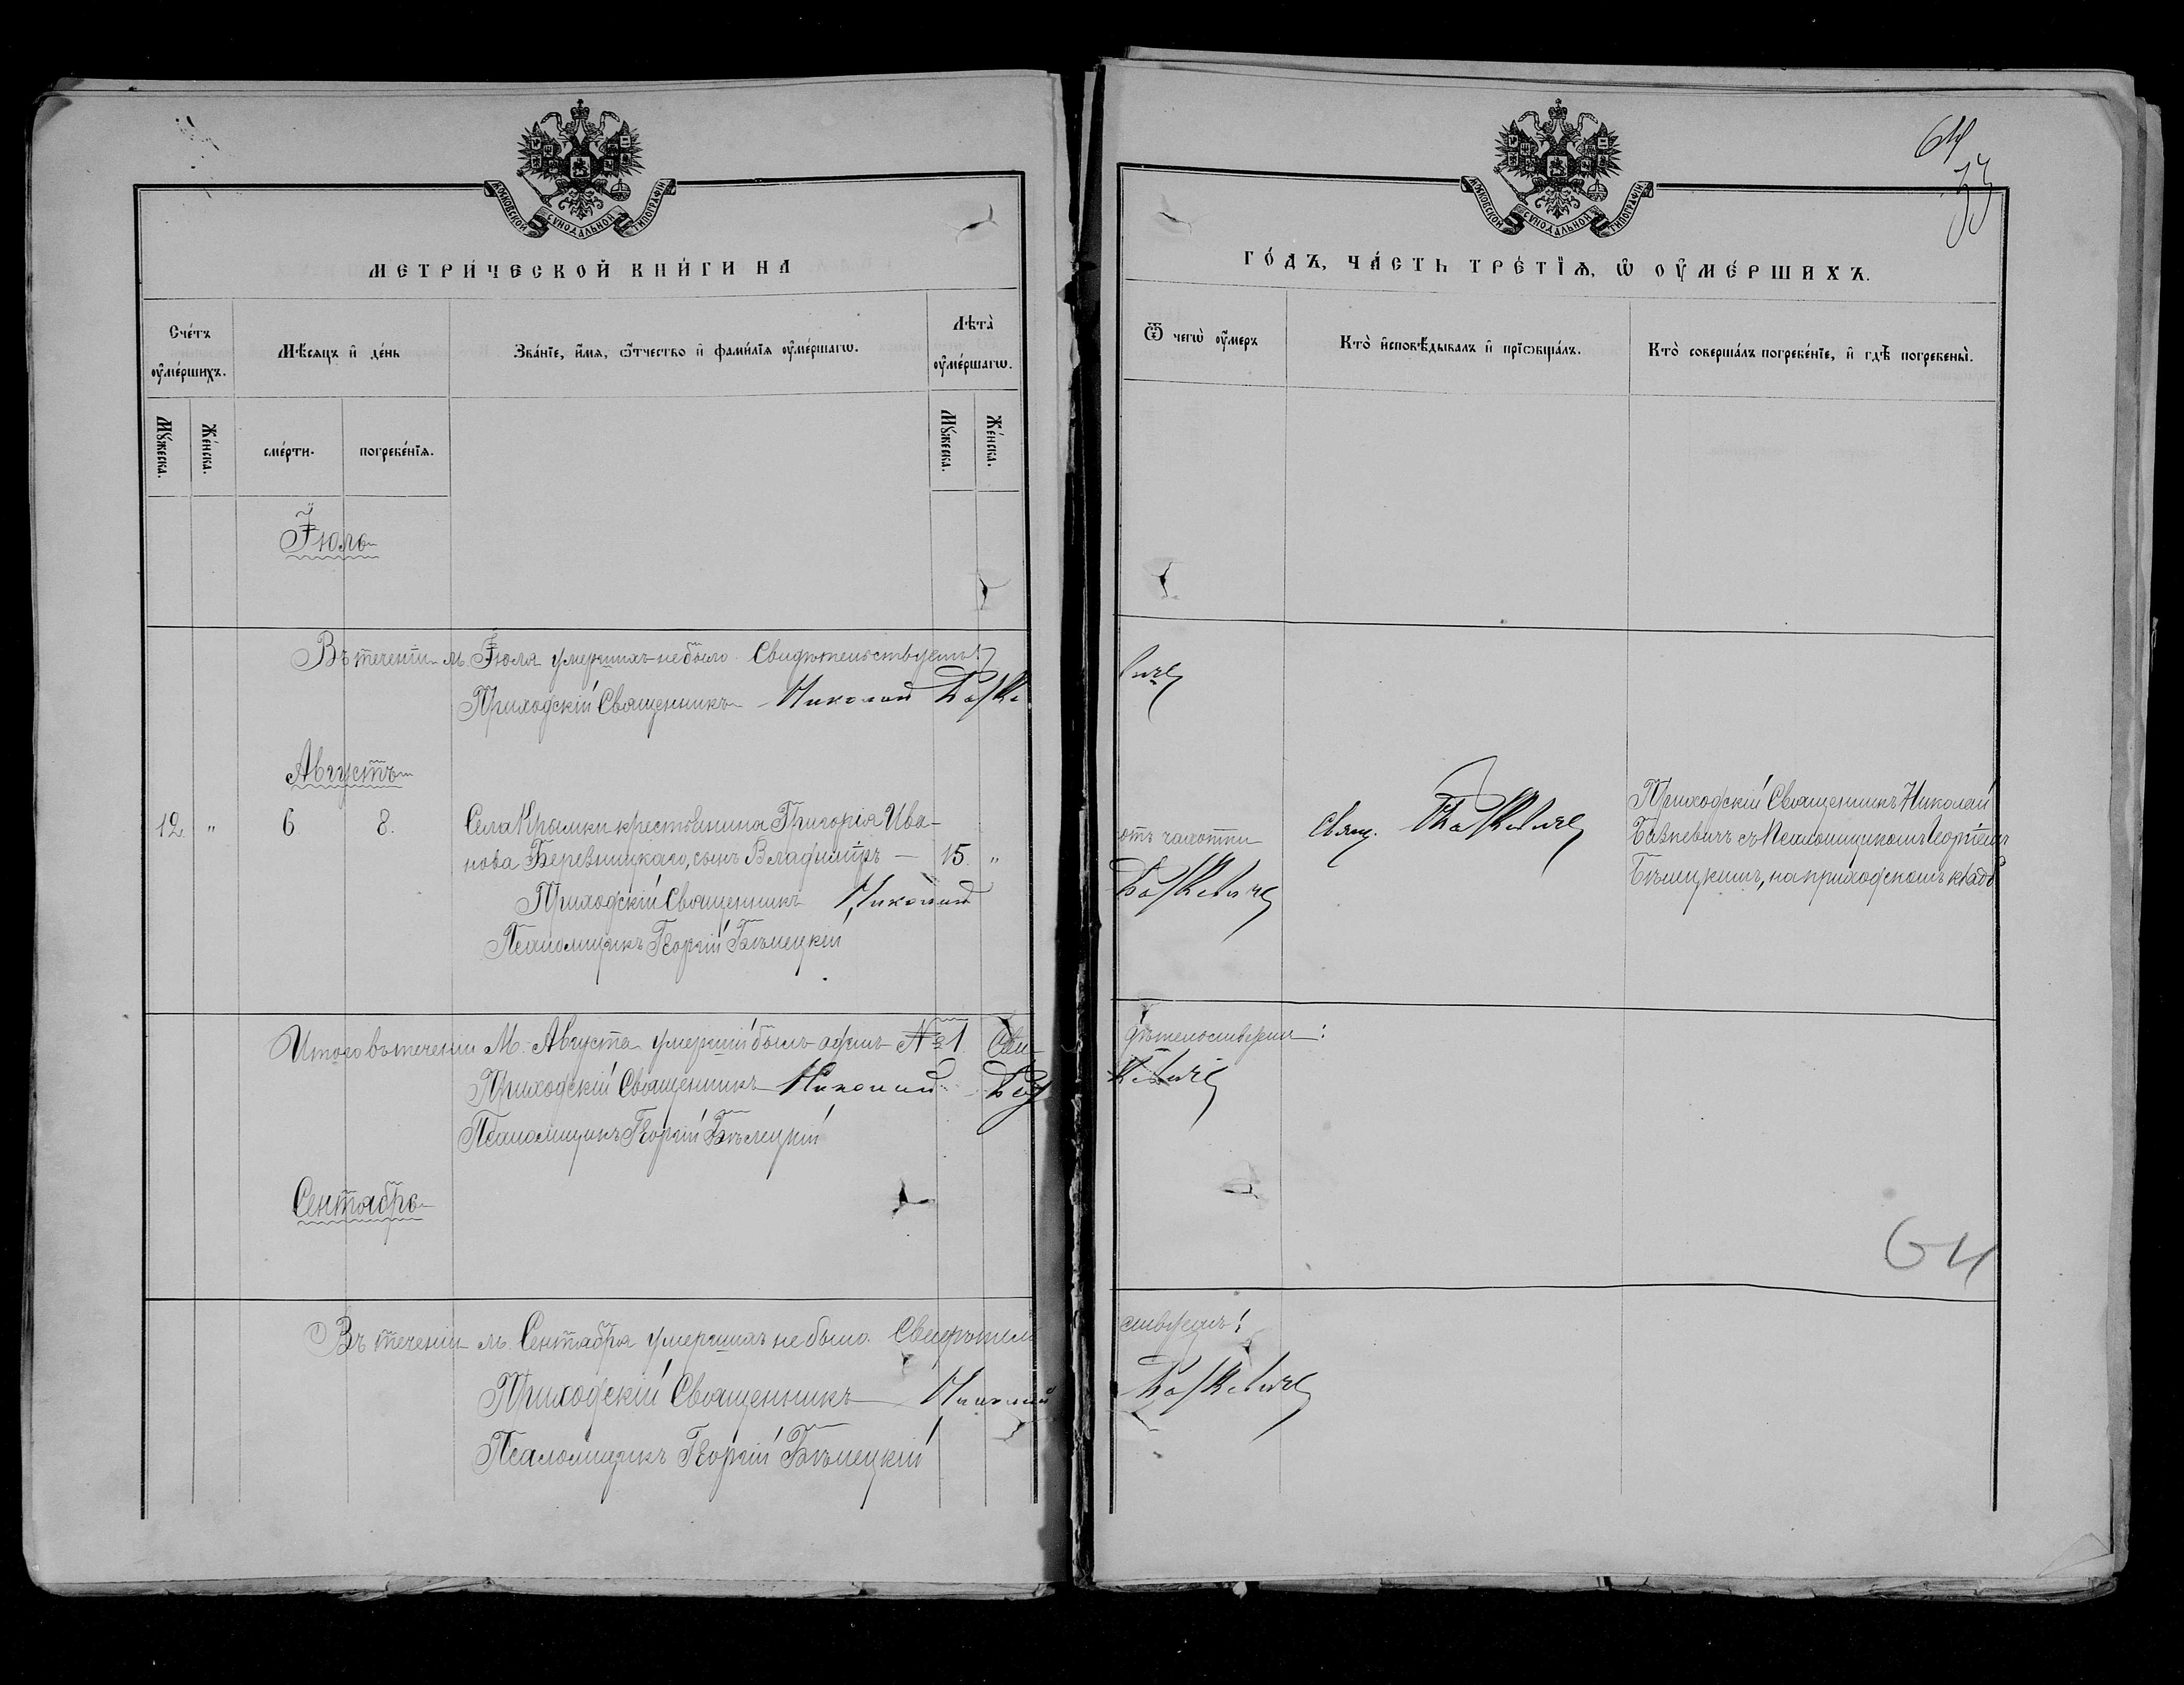 МОСКОВСКОЙ СѴНОДАЛЬНОЙ ТИПОГРАФІИ
МЕТРИ́ЧЕСКОЙ КНИ́ГИ НА
Сче́тъ оу҆ме́ршихъ.
Мѣ́сяцъ и҆ де́нь
Зва́нїе, и҆́мѧ, ѻ҆́тчество и҆ фами́лїѧ оу҆ме́ршагѡ.
Лѣта̀ оу҆ме́ршагѡ.
Мꙋ́жеска.
Же́нска.
сме́рти.
погребе́нїѧ.
Мꙋ́жеска.
Же́нска.
Іюль
Въ теченіи м. Іюля умершихъ не было. Свидѣтельствуемъ:
Приходскій Священникъ Николай
Августъ
12 " 6 8. Села Крымки крестьянина Григорія Ива-
нова Беревницкаго, сынъ Владиміръ — 15. "
Приходскій Священникъ Николай
Псаломщикъ Георгій Бѣлецкій
Итого въ теченіи М. Августа умершій былъ одинъ № 1. Сви-
Приходскій Священникъ Николай
Псаломщикъ Георгій Бѣлецкій
Сентябрь
Въ теченіи м. Сентября умершихъ не было. Свидѣтель
Приходскій Священникъ Николай
Псаломщикъ Георгій Бѣлецкій
64
33
МОСКОВСКОЙ СѴНОДАЛЬНОЙ ТИПОГРАФІИ
ГО́ДЪ, ЧА́СТЬ ТРЕ́ТЇѦ, Ѡ҆ ОУ҆МЕ́РШИХЪ.
Ѿ чегѡ̀ оу҆́меръ
Кто̀ и҆сповѣ́дывалъ и҆ прїѡбща́лъ.
Кто̀ соверша́лъ погребе́нїе, и҆ гдѣ̀ погребены̀.
отъ чахотки
Свящ.
Приходскій Священникъ Николай
съ Псаломщикомъ Георгіемъ
Бѣлецкимъ, на приходскомъ кладб
дѣтельствуемъ:
64
ствуемъ: